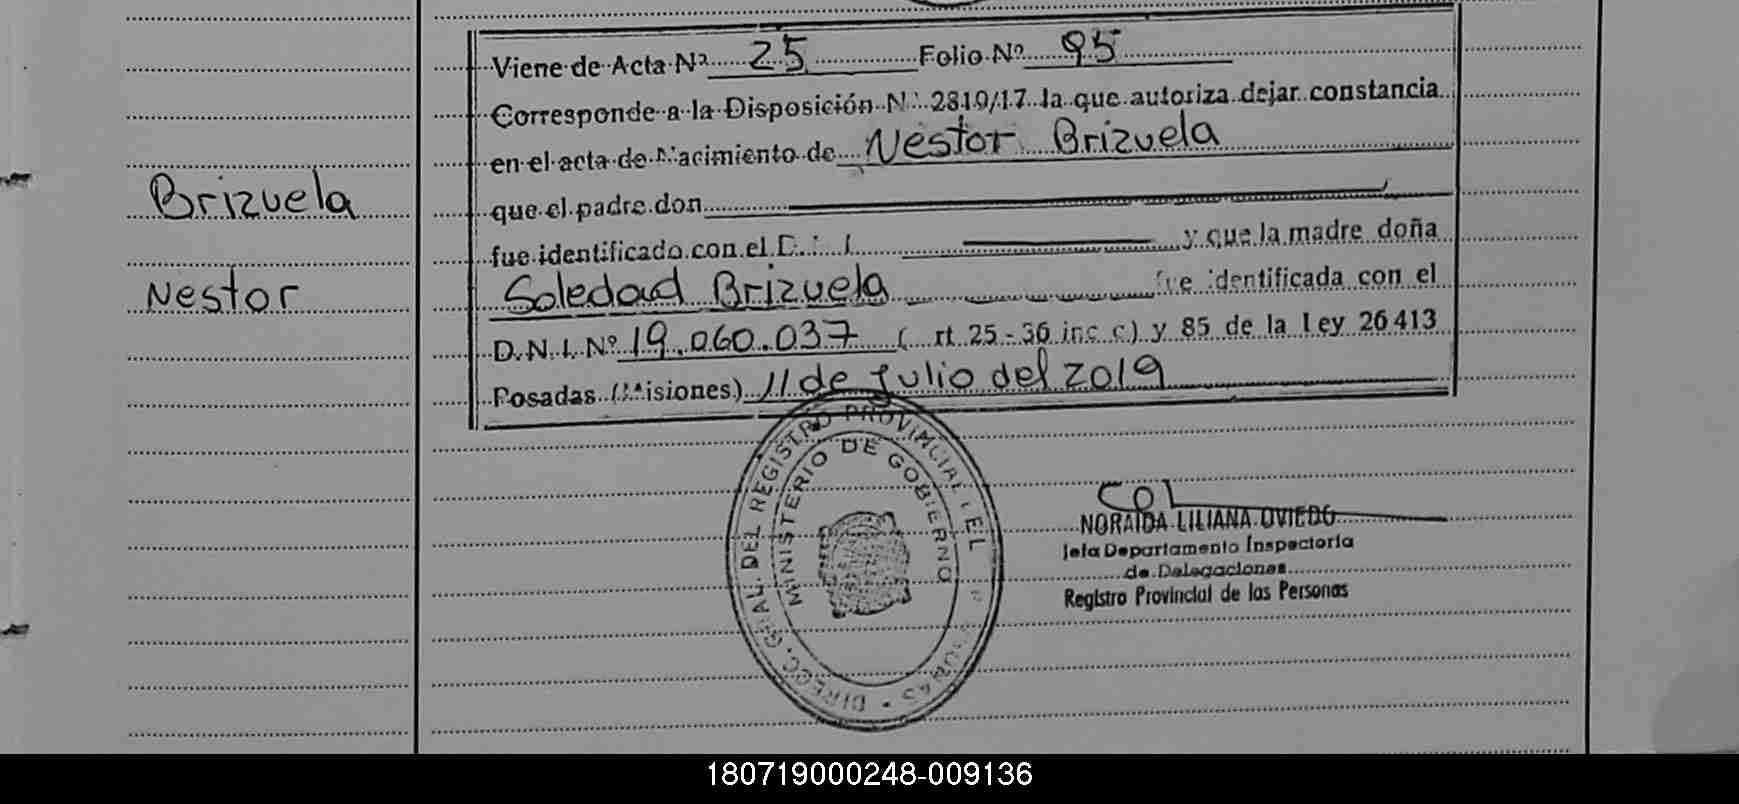 Viene de Acta Nº 25 Folio Nº 95
Corresponde a la Disposición Nº 2819/17 la que autoriza dejar constancia
en el acta de Nacimiento de Nestor Brizuela
que el padre don
fue identificado con el D. . I.
y que la madre doña
Soledad Brizuela fue identificada con el
D.N.I. Nº 19.060.037 ( rt 25 - 36 inc c) y 85 de la Ley 26413
Posadas (Misiones) 11 de Julio del 2019
Brizuela
Nestor
DIRECC. GRAL. DEL REGISTRO PROVINCIAL DE L
MINISTERIO DE GOBIERNO
NORAIDA LILIANA OVIEDO
Jefa Departamento Inspectoria
de Delegaciones
Registro Provincial de las Personas
180719000248-009136